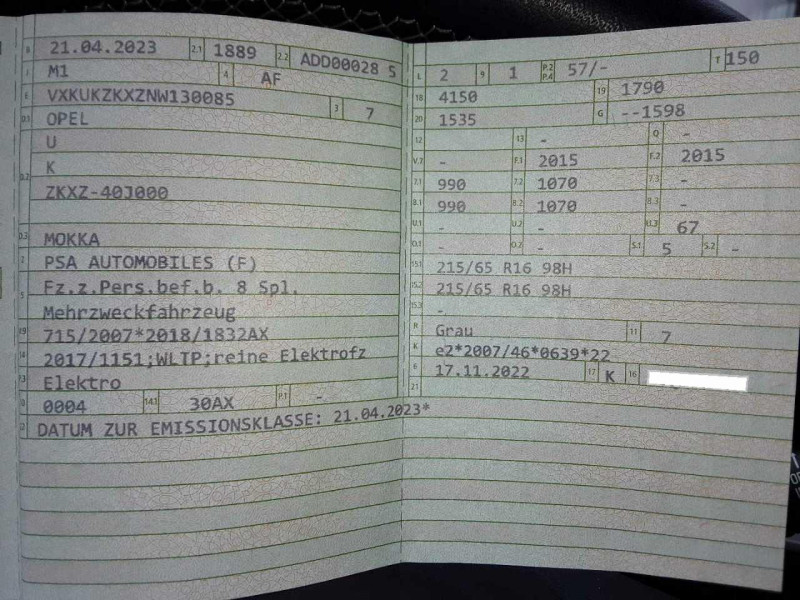 B 21.04.2023 2.1 1889 2.2 ADD00028 5
J M1 4 AF
E VXKUKZKXZNW130085 3 7
D.1 OPEL
U
K
D.2 ZKXZ-40J000
D.3 MOKKA
2 PSA AUTOMOBILES (F)
5 Fz.z.Pers.bef.b. 8 Spl.
Mehrzweckfahrzeug
V.9 715/2007*2018/1832AX
14 2017/1151;WLTP;reine Elektrofz
P.3 Elektro
10 0004 14.1 30AX P.1 -
22 DATUM ZUR EMISSIONSKLASSE: 21.04.2023*
L 2 9 1 P.2 P.4 57/- T 150
18 4150 19 1790
20 1535 G --1598
12 - 13 - Q -
V.7 - F.1 2015 F.2 2015
7.1 990 7.2 1070 7.3 -
8.1 990 8.2 1070 8.3 -
U.1 - U.2 - U.3 67
O.1 - O.2 - S.1 5 S.2 -
15.1 215/65 R16 98H
15.2 215/65 R16 98H
15.3 -
R Grau 11 7
K e2*2007/46*0639*22
6 17.11.2022 17 K 16
21